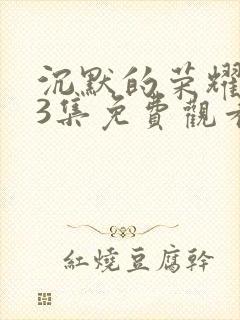 沉默的荣耀
3集免費觀看
紅燒豆腐幹